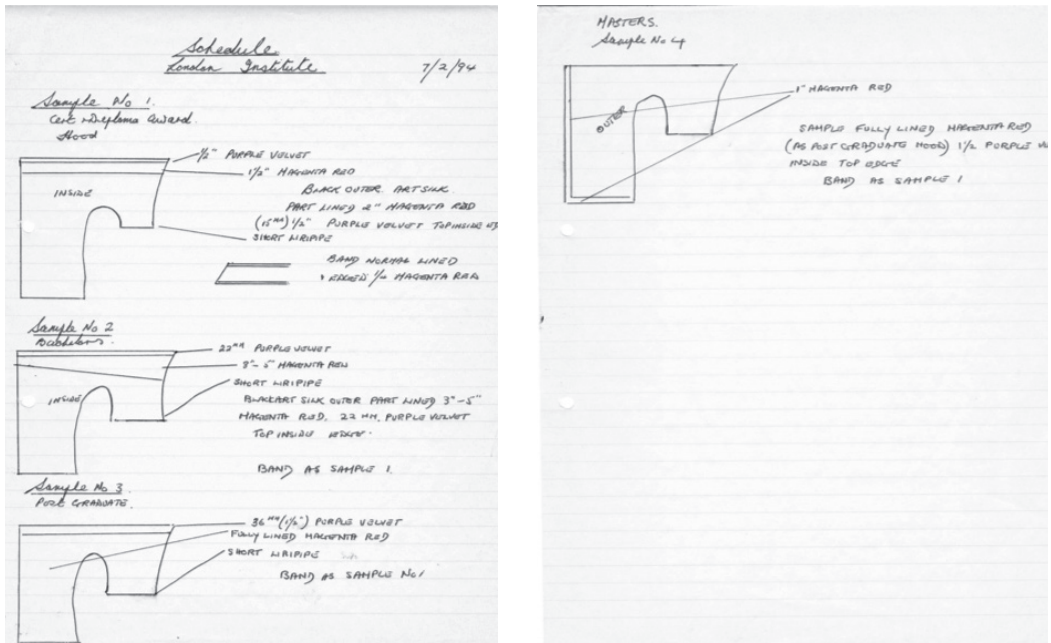 Schedule
London Institute 7/2/94
Sample No 1.
Cert + Diploma Award.
Hood
1/2" PURPLE VELVET
1 1/2" MAGENTA RED
INSIDE
BLACK OUTER ART SILK.
PART LINED 2" MAGENTA RED
(15MM) 1/2" PURPLE VELVET TOP INSIDE ED
SHORT LIRIPIPE
BAND NORMAL LINED
EDGED 1/4 MAGENTA RED
Sample No 2
Bachelors.
22MM PURPLE VELVET
3"-5" MAGENTA RED
SHORT LIRIPIPE
INSIDE
BLACK ART SILK OUTER PART LINED 3"-5"
MAGENTA RED. 22 MM. PURPLE VELVET
TOP INSIDE EDGE.
BAND AS SAMPLE 1.
Sample No 3.
POST GRADUATE.
36MM (1 1/2") PURPLE VELVET
FULLY LINED MAGENTA RED
SHORT LIRIPIPE
BAND AS SAMPLE No 1
MASTERS.
Sample No 4
1" MAGENTA RED
OUTER
SAMPLE FULLY LINED MAGENTA RED
(AS POST GRADUATE HOOD) 1 1/2 PURPLE VE
INSIDE TOP EDGE
BAND AS SAMPLE 1